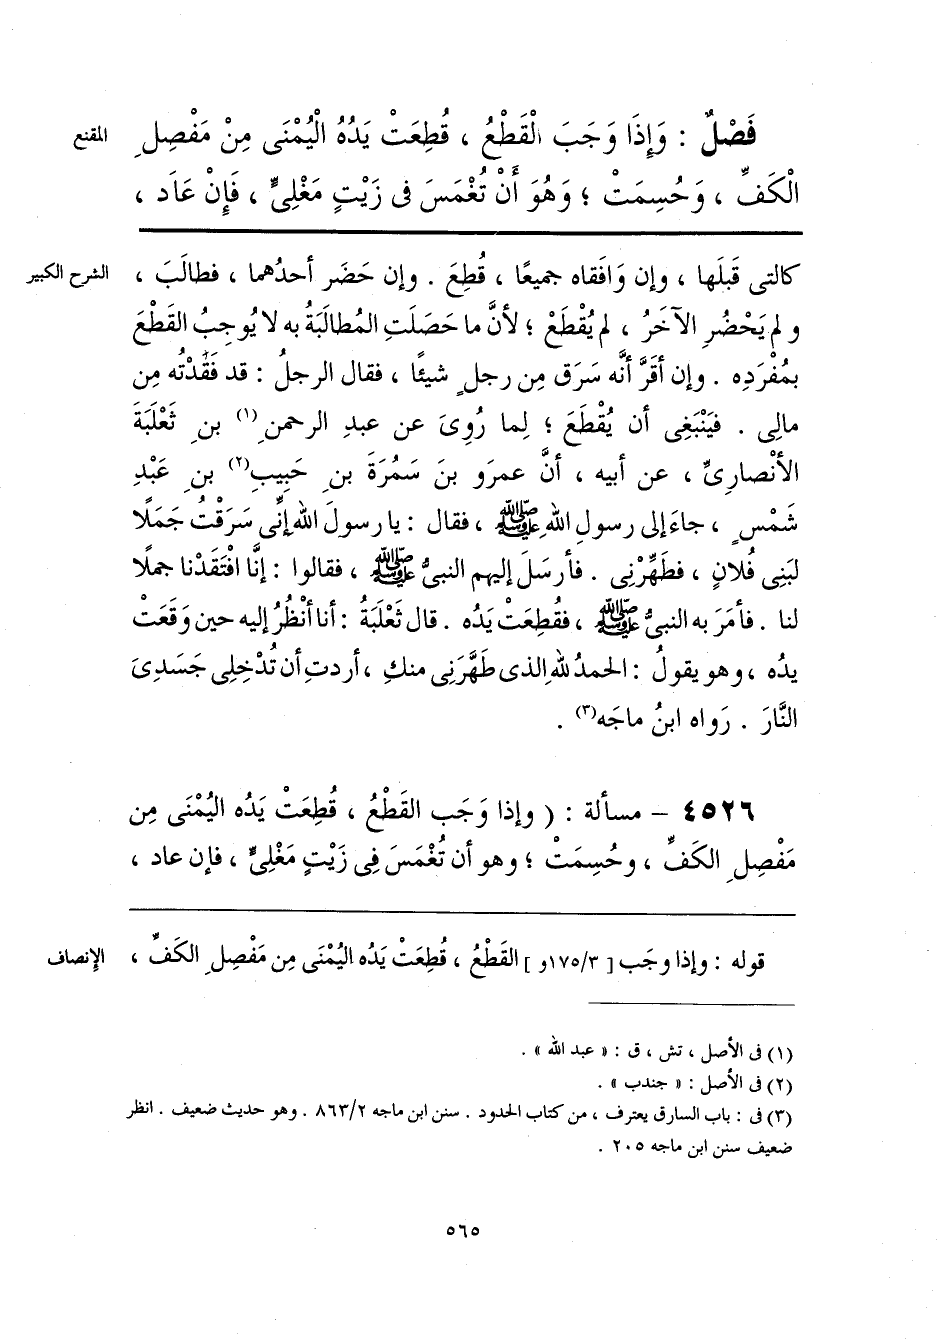 المقنع
فَصْلٌ : وَإِذَا وَجَبَ الْقَطْعُ ، قُطِعَتْ يَدُهُ الْيُمْنَى مِنْ مَفْصِلِ
الْكَفِّ ، وَحُسِمَتْ ؛ وَهُوَ أَنْ تُغْمَسَ فى زَيْتٍ مَغْلِىٍّ ، فَإِنْ عَادَ ،
الشرح الكبير
كالتى قَبلَها ، وإن وَافَقاه جميعًا ، قُطِعَ . وإن حَضَر أحدُهما ، فطالَبَ ،
ولم يَحْضُرِ الآخَرُ ، لم يُقْطَعْ ؛ لأنَّ ما حَصَلَتِ المُطالَبَةُ به لا يُوجِبُ القَطْعَ
بمُفْرَدِه . وإن أقَرَّ أنَّه سَرَق مِن رجلٍ شيئًا ، فقال الرجلُ : قد فَقَدْتُه مِن
مالِى . فيَنْبَغِى أن يُقْطَعَ ؛ لِما رُوِىَ عن عبدِ الرحمنِ(١) بنِ ثَعْلَبَةَ
الأنْصارِىِّ ، عن أبيه ، أنَّ عمرَو بنَ سَمُرَةَ بنِ حَبِيبِ(٢) بنِ عَبْدِ
شَمْسٍ ، جاءَ إلى رسولِ اللهِ ﷺ ، فقال : يا رسولَ اللهِ إنِّى سَرَقْتُ جَمَلًا
لبَنِى فُلانٍ ، فطَهِّرْنِى . فأرسَلَ إليهم النبىُّ ﷺ ، فقالوا : إنَّا افْتَقَدْنا جملًا
لنا . فأمَرَ به النبىُّ ﷺ ، فقُطِعَتْ يَدُه . قال ثَعْلَبَةُ : أنا أنْظُرُ إليه حين وَقَعَتْ
يدُه ، وهو يقولُ : الحمدُ للهِ الذى طَهَّرَنِى منكِ ، أردتِ أن تُدْخِلِى جَسَدِىَ
النَّارَ . رَواه ابنُ ماجَه(٣) .
٤٥٢٦ – مسألة : ( وإذا وَجَب القَطْعُ ، قُطِعَتْ يَدُه اليُمْنَى مِن
مَفْصِلِ الكَفِّ ، وحُسِمَتْ ؛ وهو أن تُغْمَسَ فِى زَيْتٍ مَغْلِىٍّ ، فإن عاد ،
الإنصاف
قوله : وإذا وجَب [ ١٧٥/٣و ] القَطْعُ ، قُطِعَتْ يَدُه اليُمْنَى مِن مَفْصِلِ الكَفِّ ،
(١) فى الأصل ، تش ، ق : « عبد الله » .
(٢) فى الأصل : « جندب » .
(٣) فى : باب السارق يعترف ، من كتاب الحدود . سنن ابن ماجه ٨٦٣/٢ . وهو حديث ضعيف . انظر
ضعيف سنن ابن ماجه ٢٠٥ .
٥٦٥